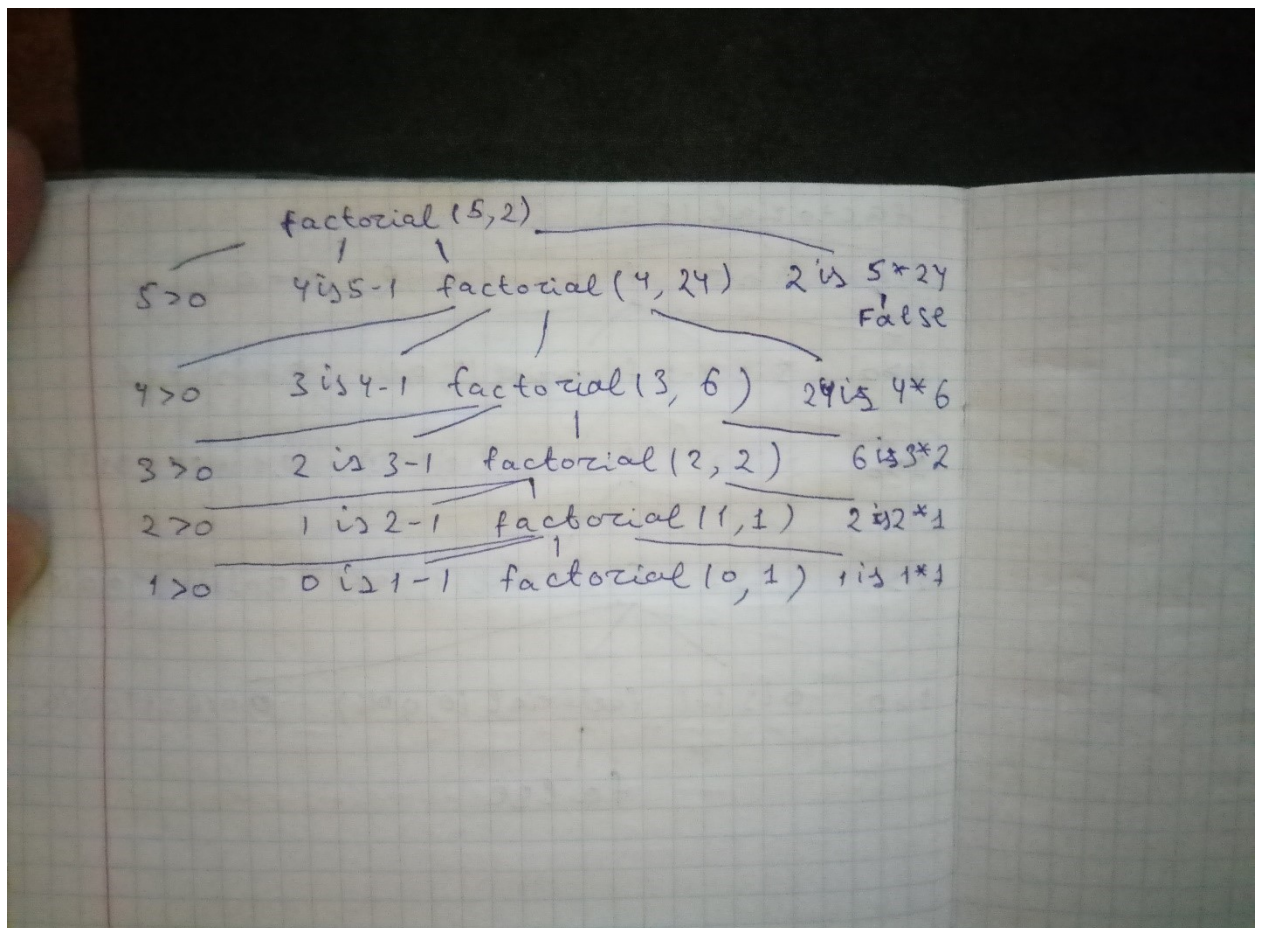 factorial (5,2)
5>0 4 is 5-1 factorial (4, 24) 2 is 5*24
False
4>0 3 is 4-1 factorial (3, 6) 24 is 4*6
3>0 2 is 3-1 factorial (2, 2) 6 is 3*2
2>0 1 is 2-1 factorial (1,1) 2 is 2*1
1>0 0 is 1-1 factorial (0, 1) 1 is 1*1